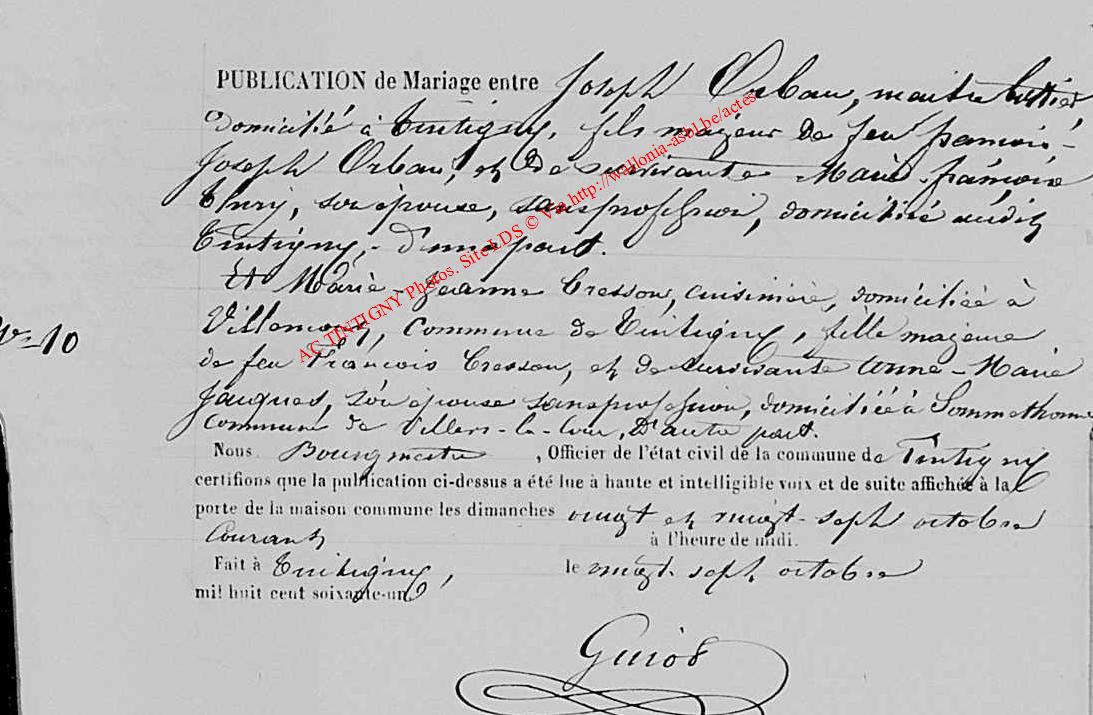 PUBLICATION de Mariage entre Joseph Orban, maitre
domicilié à Tintigny, fils majeur de feu françois-
Joseph Orban, et de survivante Marie-françoise
Thiry, son épouse, sans profession, domiciliée audit
Tintigny, d'une part.
Et Marie-Jeanne Cresson, cuisinière, domiciliée à
Villemont, Commune de Tintigny, fille majeure
de feu François Cresson, et de survivante Anne-Marie
Jacques, son épouse sans profession, domiciliée à Sommethonne
Commune de Villers-la-loue, D'autre part.
N° 10
Nous Bourgmestre, Officier de l'état civil de la commune de Tintigny
certifions que la publication ci-dessus a été lue à haute et intelligible voix et de suite affichée à la
porte de la maison commune les dimanches vingt et vingt-sept octobre
Courant à l'heure de midi.
Fait à Tintigny, le vingt-sept octobre
mil huit cent soixante-un
Guiot
AC TINTIGNY Photos. Site LDS © Via http://wallonia-asbl.be/actes